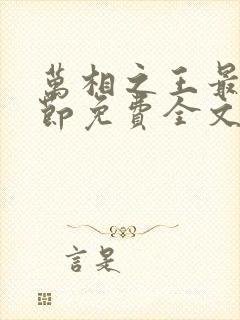 萬相之王最
節免費全文
言是